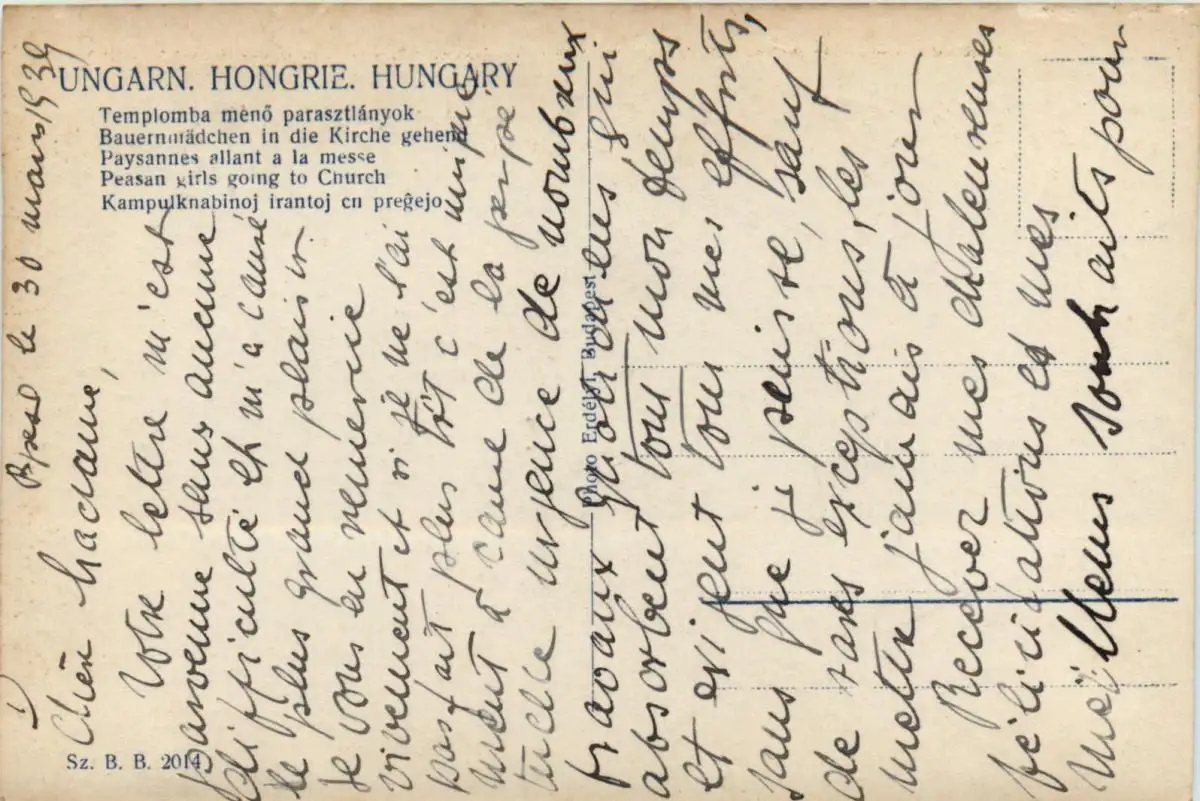 UNGARN. HONGRIE. HUNGARY
Templomba menő parasztlányok
Bauernmädchen in die Kirche gehend
Paysannes allant a la messe
Peasan girls going to Church
Kampulknabinoj irantoj en preĝejo
Sz. B. B. 2014
Photo Erdélyi, Budapest
1)
Bpest le 30 mars 1939
Chère Madame,
Votre lettre m'est
parvenue sans aucune
difficulté et m'a causé
le plus grand plaisir
Je vous en remercie
vivement et si je ne l'ai
pas fait plus tôt c'est uniqué
ment à cause de la perpé
tuelle urgence de nombreux
travaux quotidiens qui
absorbent tout mon temps
et exigent tous mes efforts,
sans que je puisse, sauf
de rares exceptions, les
mettre jamais à jour
Recevez mes chaleureuses
félicitations et mes
meilleurs souhaits pour